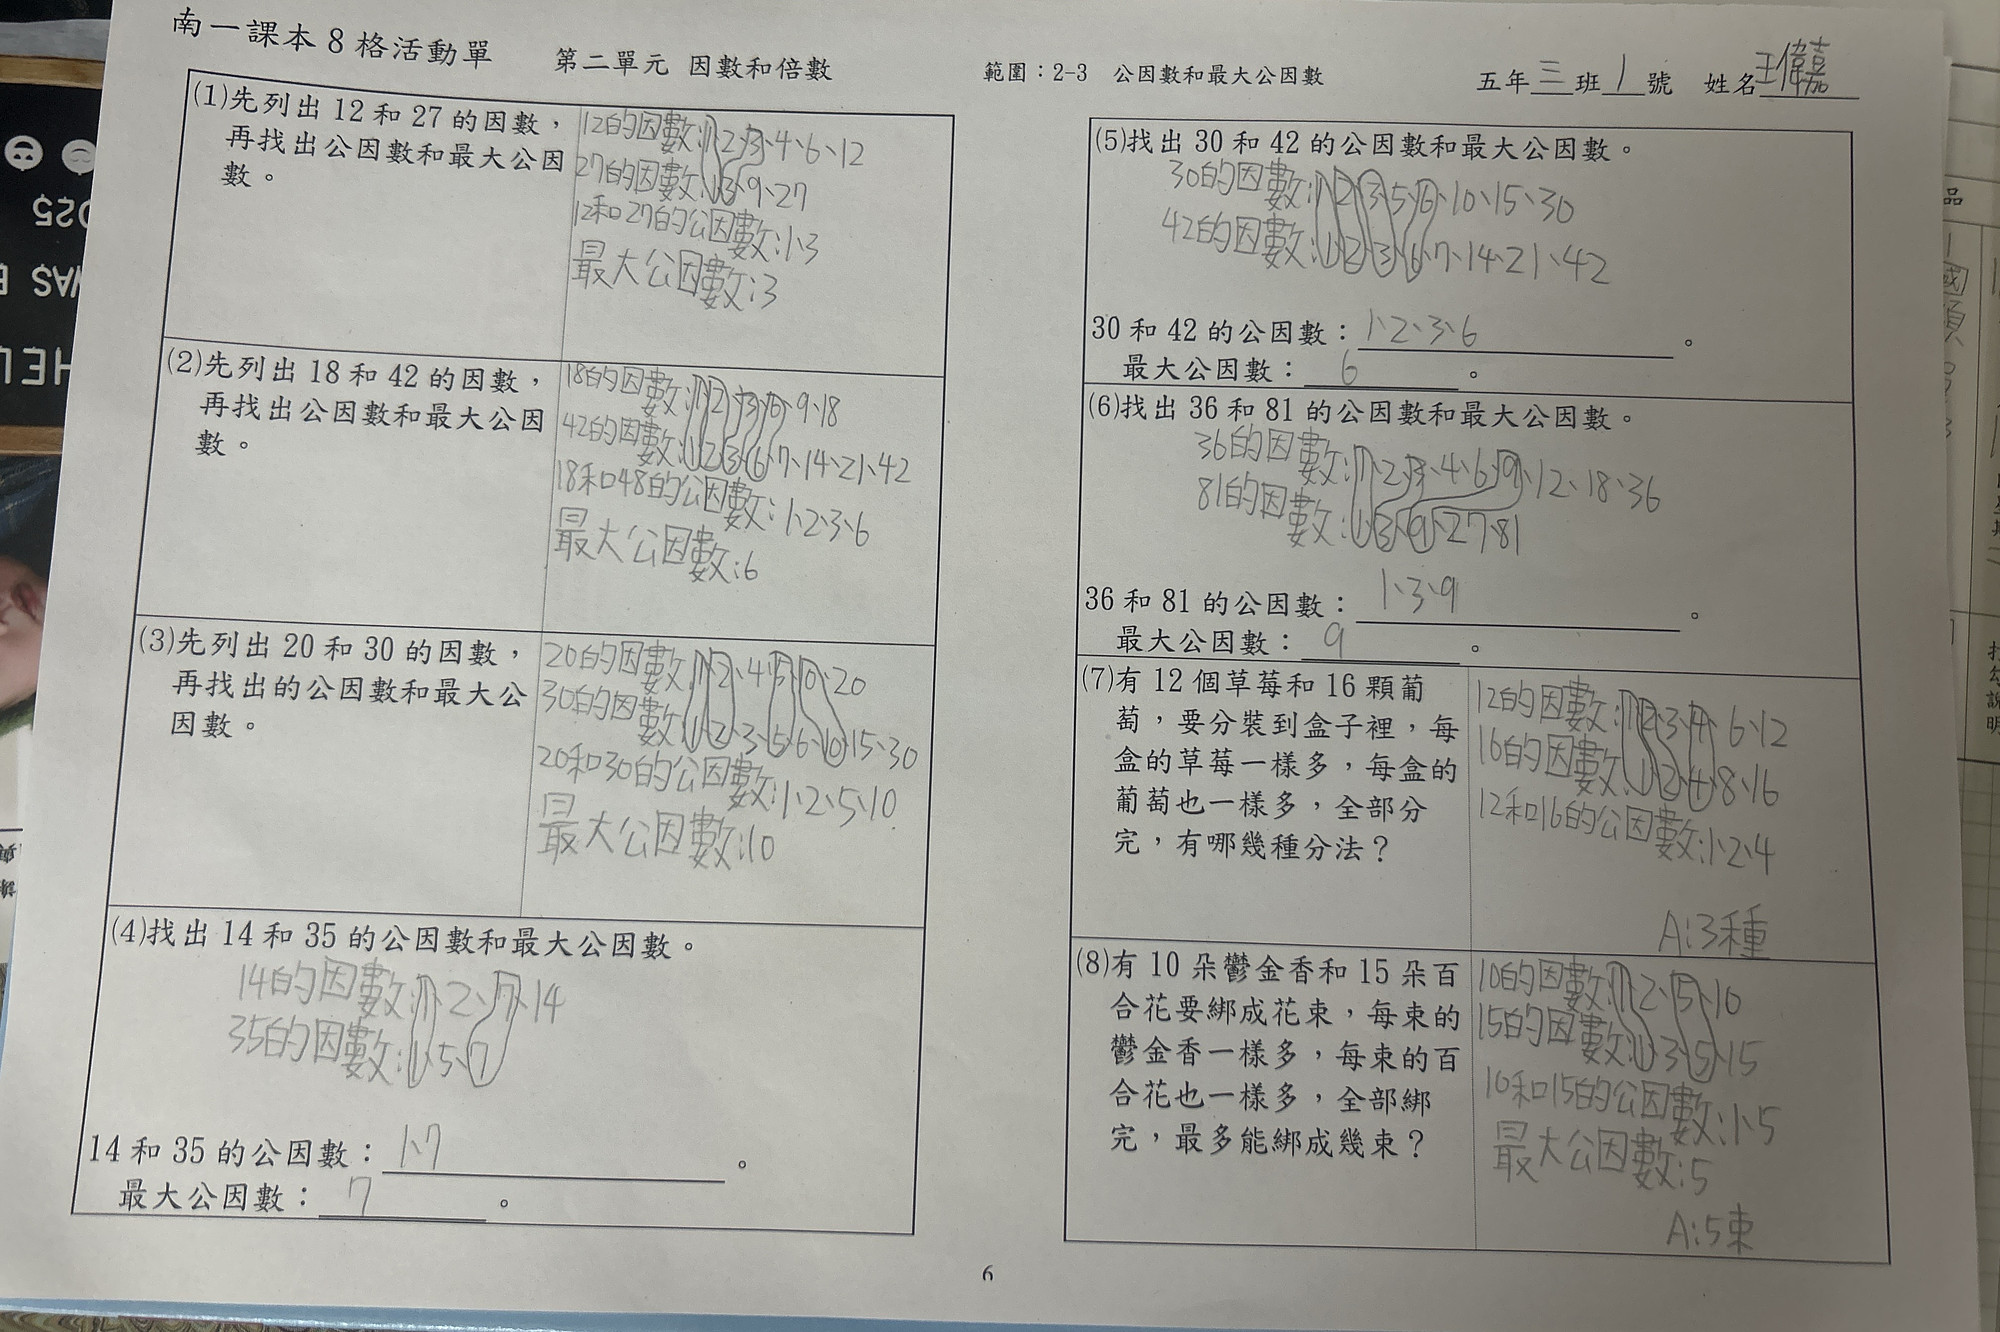 南一課本8格活動單 第二單元 因數和倍數 範圍：2-3 公因數和最大公因數 五年三班1號 姓名王偉嘉
(1)先列出12和27的因數，
再找出公因數和最大公因
數。
12的因數:1、2、3、4、6、12
27的因數:1、3、9、27
12和27的公因數:1、3
最大公因數:3
(2)先列出18和42的因數，
再找出公因數和最大公因
數。
18的因數:1、2、3、6、9、18
42的因數:1、2、3、6、7、14、21、42
18和48的公因數:1、2、3、6
最大公因數:6
(3)先列出20和30的因數，
再找出的公因數和最大公
因數。
20的因數:1、2、4、5、10、20
30的因數:1、2、3、5、6、10、15、30
20和30的公因數:1、2、5、10
最大公因數:10
(4)找出14和35的公因數和最大公因數。
14的因數:1、2、7、14
35的因數:1、5、7
14和35的公因數：1、7。
最大公因數：7。
(5)找出30和42的公因數和最大公因數。
30的因數:1、2、3、5、6、10、15、30
42的因數:1、2、3、6、7、14、21、42
30和42的公因數：1、2、3、6。
最大公因數：6。
(6)找出36和81的公因數和最大公因數。
36的因數:1、2、3、4、6、9、12、18、36
81的因數:1、3、9、27、81
36和81的公因數：1、3、9。
最大公因數：9。
(7)有12個草莓和16顆葡
萄，要分裝到盒子裡，每
盒的草莓一樣多，每盒的
葡萄也一樣多，全部分
完，有哪幾種分法？
12的因數:1、2、3、4、6、12
16的因數:1、2、4、8、16
12和16的公因數:1、2、4
A:3種
(8)有10朵鬱金香和15朵百
合花要綁成花束，每束的
鬱金香一樣多，每束的百
合花也一樣多，全部綁
完，最多能綁成幾束？
10的因數:1、2、5、10
15的因數:1、3、5、15
10和15的公因數:1、5
最大公因數:5
A:5束
6